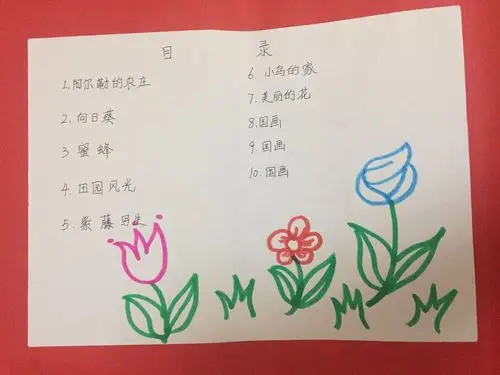 目 录
1.阿尔勒的农庄
2.向日葵
3.蜜蜂
4.田园风光
5.紫藤
6.小鸟的家
7.美丽的花
8.国画
9.国画
10.国画